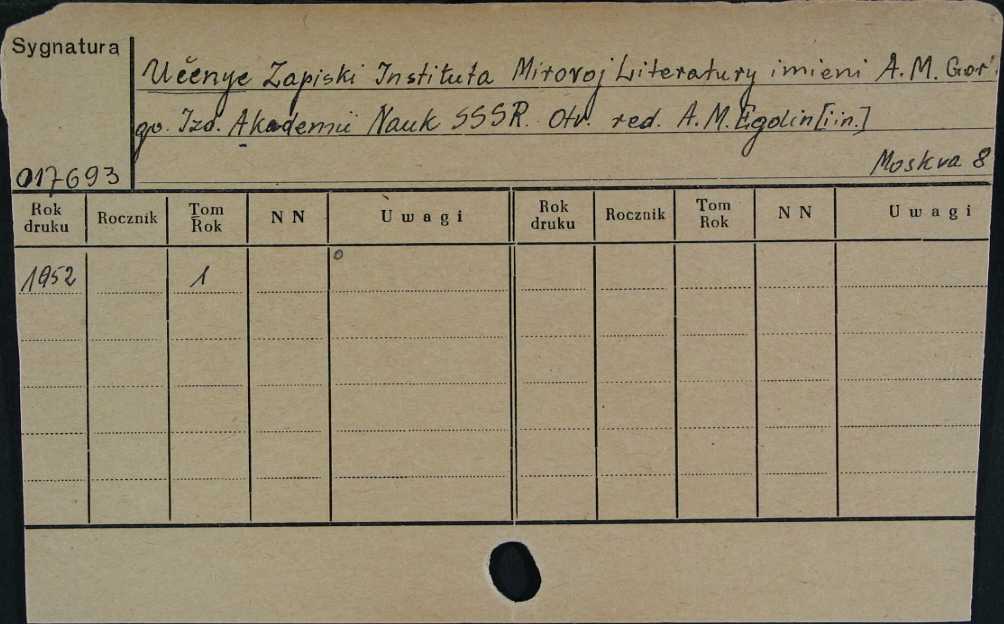 Sygnatura
Učenye Zapiski Instituta Mirovoj Literatury imieni A. M. Gor'
go. Izd. Akademii Nauk SSSR. Otv. red. A. M. Egolin [i in.]
017693
Moskva 8
Rok druku Rocznik Tom Rok NN Uwagi Rok druku Rocznik Tom Rok NN Uwagi
1952 1